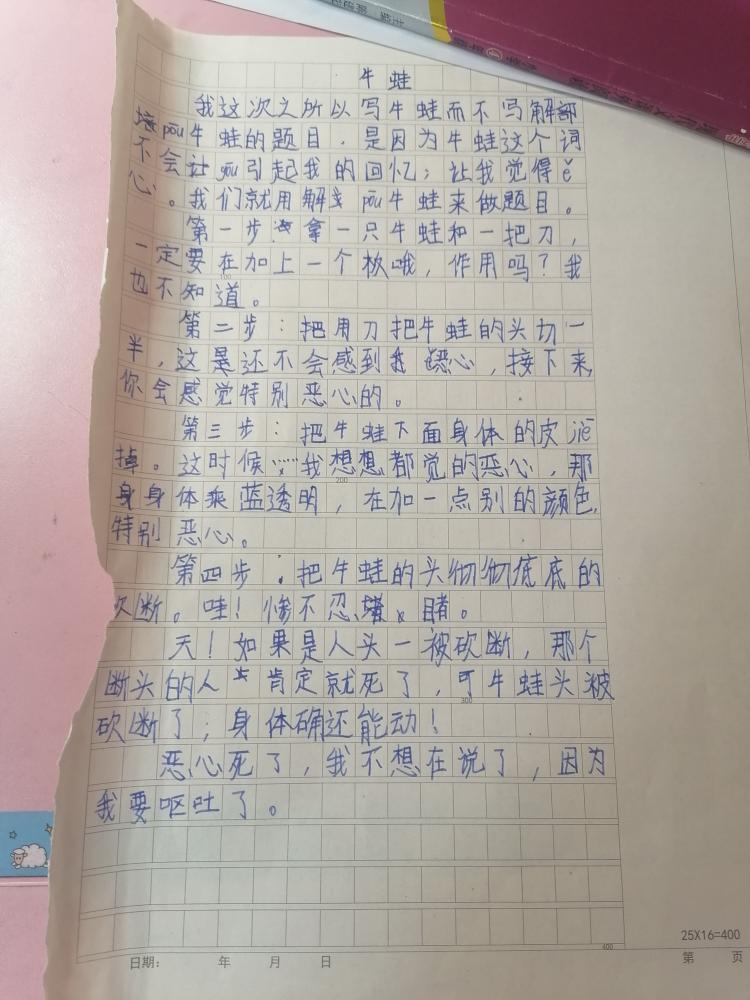 牛蛙
我这次之所以写牛蛙而不写解部
pōu牛蛙的题目.是因为牛蛙这个词
不会让gōu引起我的回忆；让我觉得ě
心。我们就用解pōu牛蛙来做题目。
第一步拿一只牛蛙和一把刀，
一定要在加上一个板哦，作用吗？我
也不知道。
第二步：把用刀把牛蛙的头切一
半，这是还不会感到我恶心，接下来，
你会感觉特别恶心的。
第三步：把牛蛙下面身体的皮jiē
掉。这时候……我想想都觉的恶心，那
身身体乘蓝透明，在加一点别的颜色，
特别恶心。
第四步：把牛蛙的头彻彻底底的
砍断。哇！惨不忍睹。
天！如果是人头一被砍断，那个
断头的人肯定就死了，可牛蛙头被
砍断了；身体确还能动！
恶心死了，我不想在说了，因为
我要呕吐了。
100
200
300
400
25X16=400
日期： 年 月 日 第 页